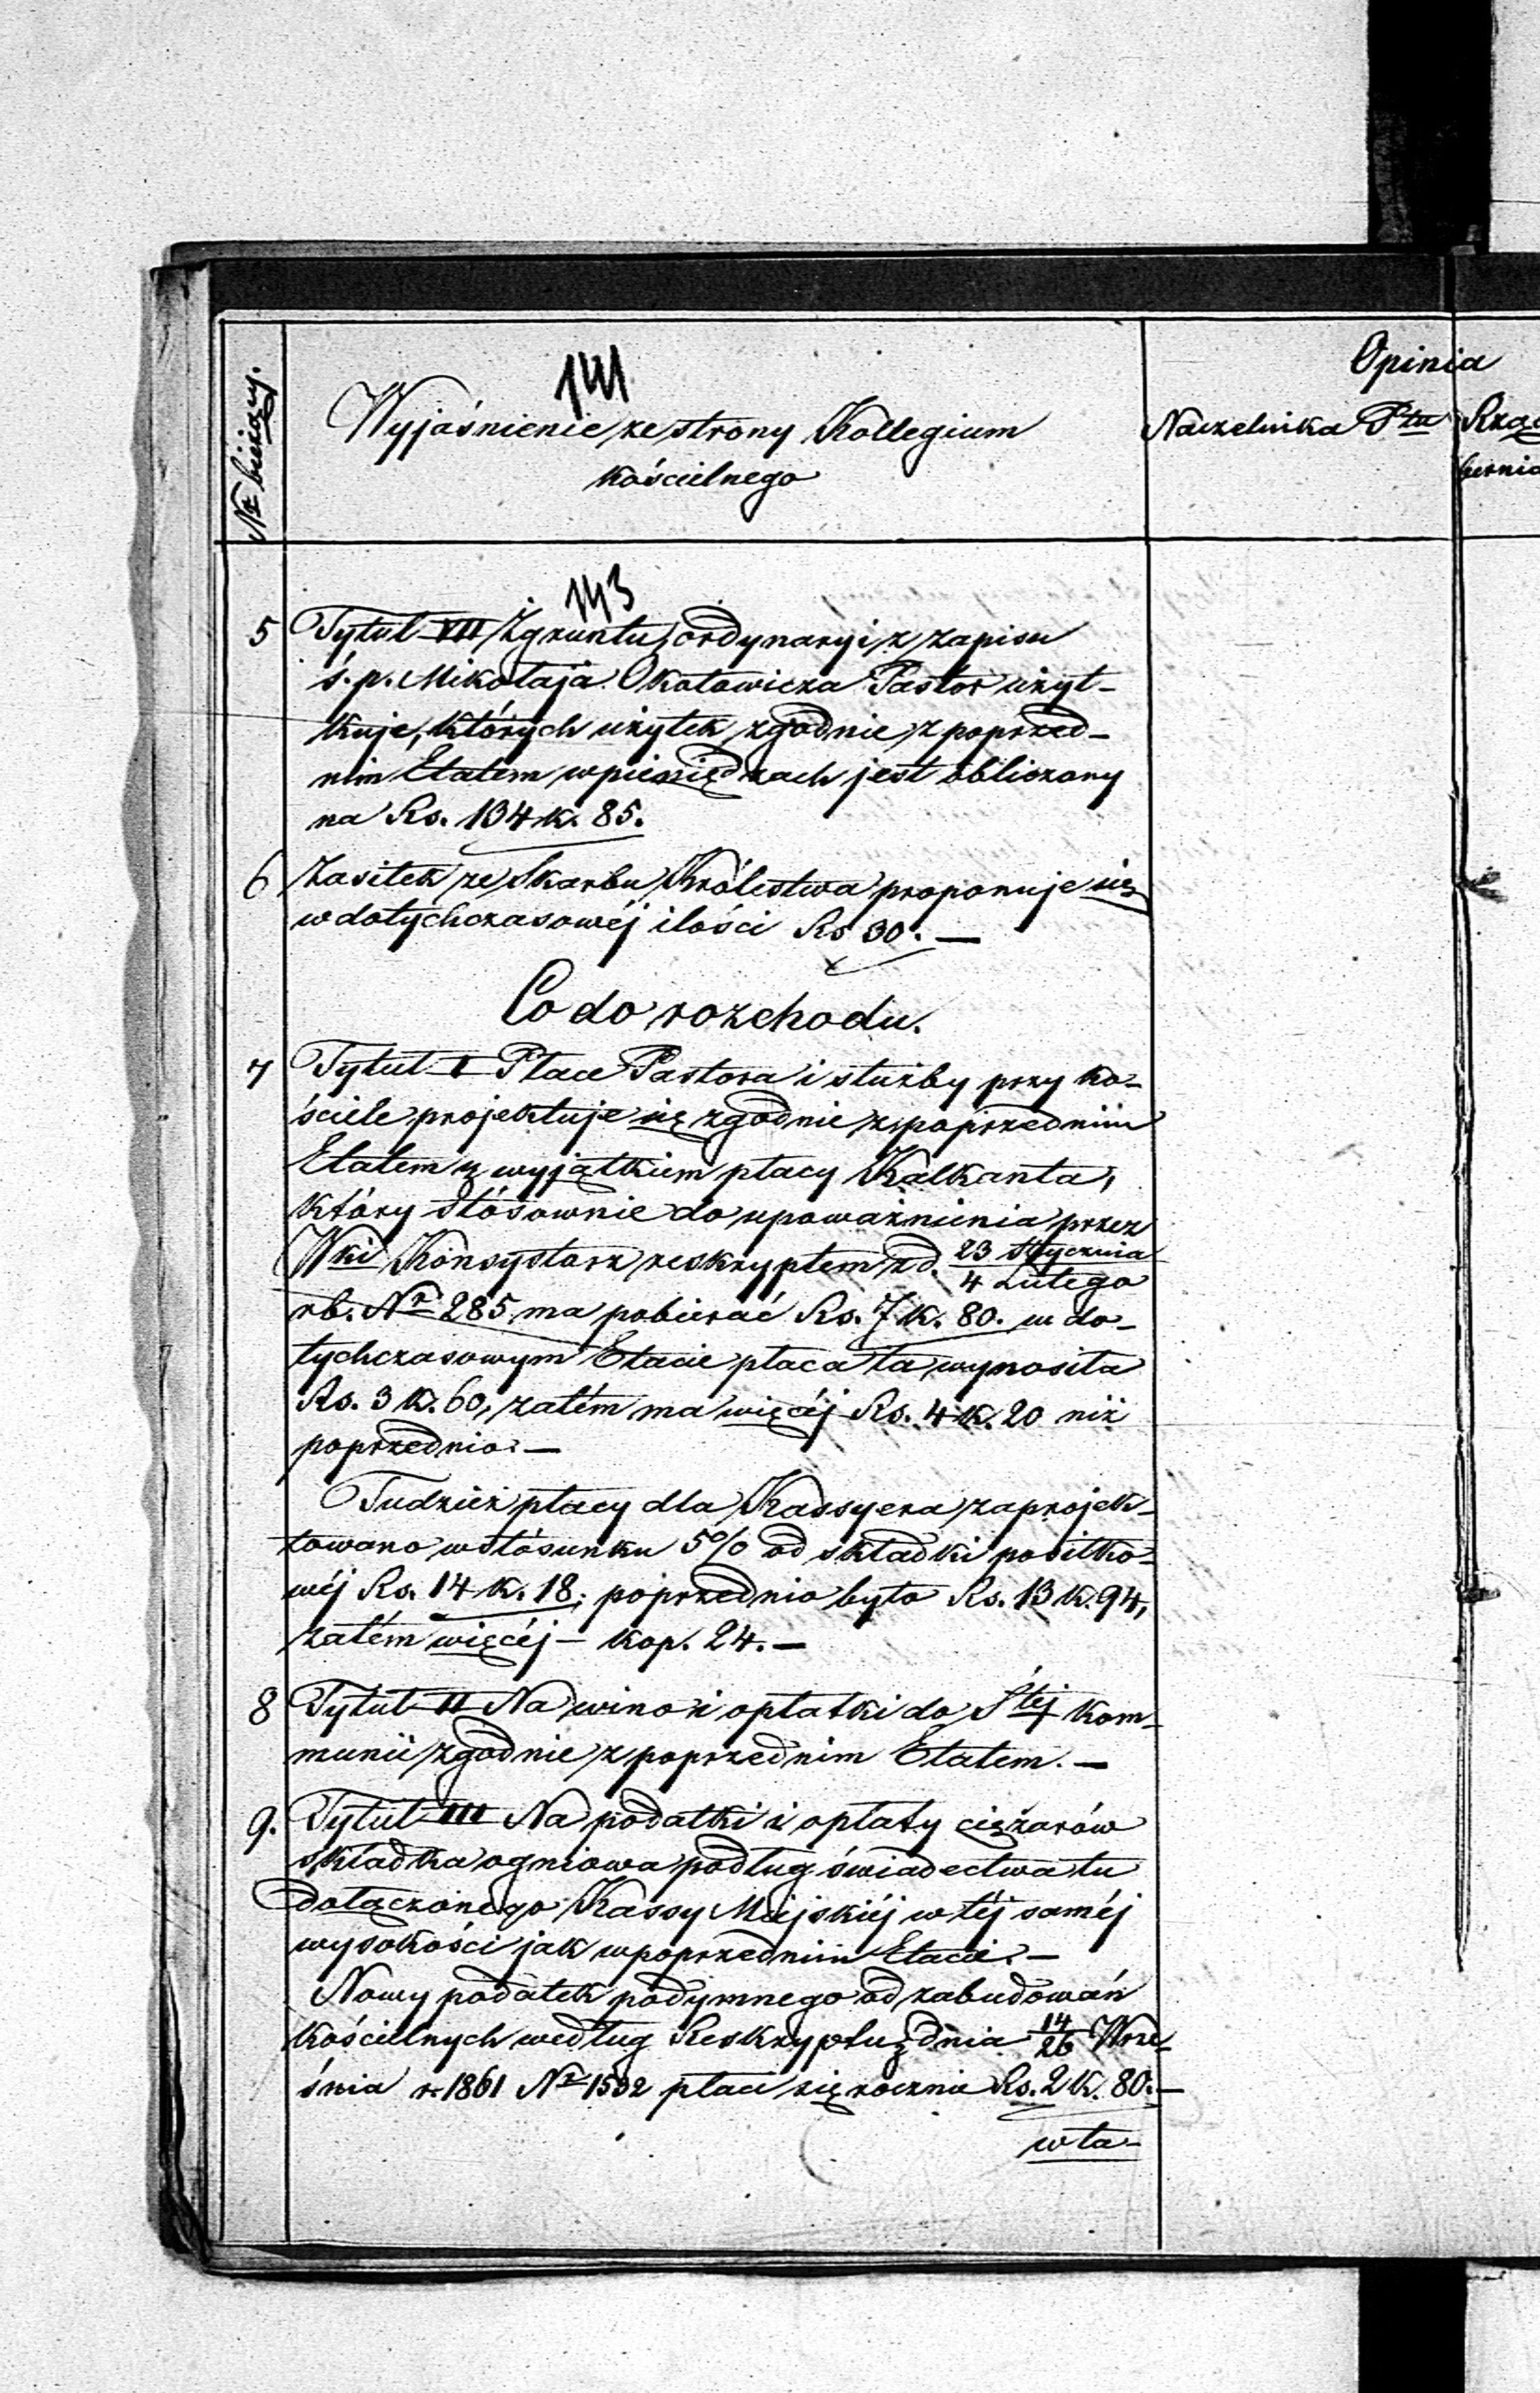 Nr bieżący.
141
Wyjaśnienie ze strony Kollegium
kościelnego
Opinia
Naczelnika Ptu
143
5 Tytuł VII Z gruntu, ordynaryi z zapisu
ś. p. Mikołaja Okołowicza Pastor użyt-
kuje, których użytek zgodnie z poprzed-
nim Etatem w pieniędzach jest obliczony
na Rs. 134 k. 85.
6 Zasiłek ze Skarbu Królestwa proponuje się
w dotychczasowéj ilości Rs 30. —
Co do rozchodu.
7 Tytuł I Płace Pastora i służby przy ko-
ściele projektuje się zgodnie z poprzednim
Etatem z wyjątkiem płacy Kalkanta,
który stósownie do upoważnienia przez
Wki Konsystorz reskryptem z d. 23 Stycznia
4 Lutego
rb. Nr 285 ma pobierać Rs. 7 k. 80. w do-
tychczasowym Etacie płaca ta wynosiła
Rs. 3 k. 60, zatém ma więcéj Rs. 4 k. 20 niż
poprzednio. —
Tudzież płacy dla Kassyera zaprojek-
towano w stósunku 5% od składki posiłko-
wéj Rs. 14 k. 18; poprzednio było Rs. 13 k. 94,
zatém więcéj — kop. 24. —
8 Tytuł II Na wino i opłatki do Śtéj kom-
munii zgodnie z poprzednim Etatem. —
9. Tytuł III Na podatki i opłaty ciężarów
składka ogniowa podług świadectwa tu
dołączonego Kassy Miejskiéj w téj saméj
wysokości jak w poprzednim Etacie. —
Nowy podatek podymnego od zabudowań
kościelnych według Reskryptu z dnia 14/26 Wrze-
śnia r. 1861 Nr 1532 płaci się rocznie Rs. 2 k. 80. —
w ta-